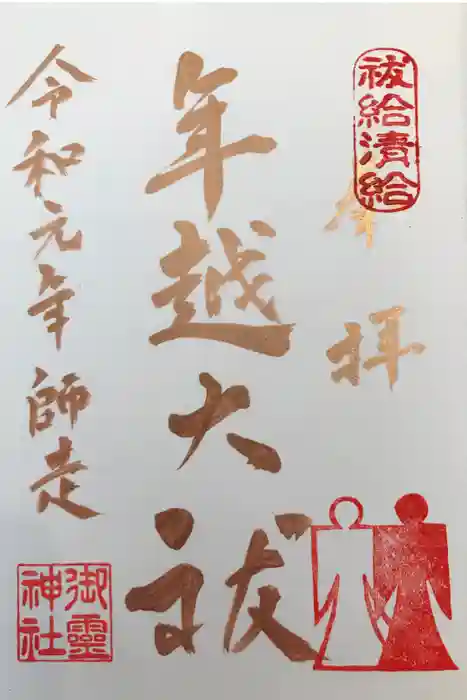 祓給清給
奉拝
年越大祓
令和元年師走
御靈
神社